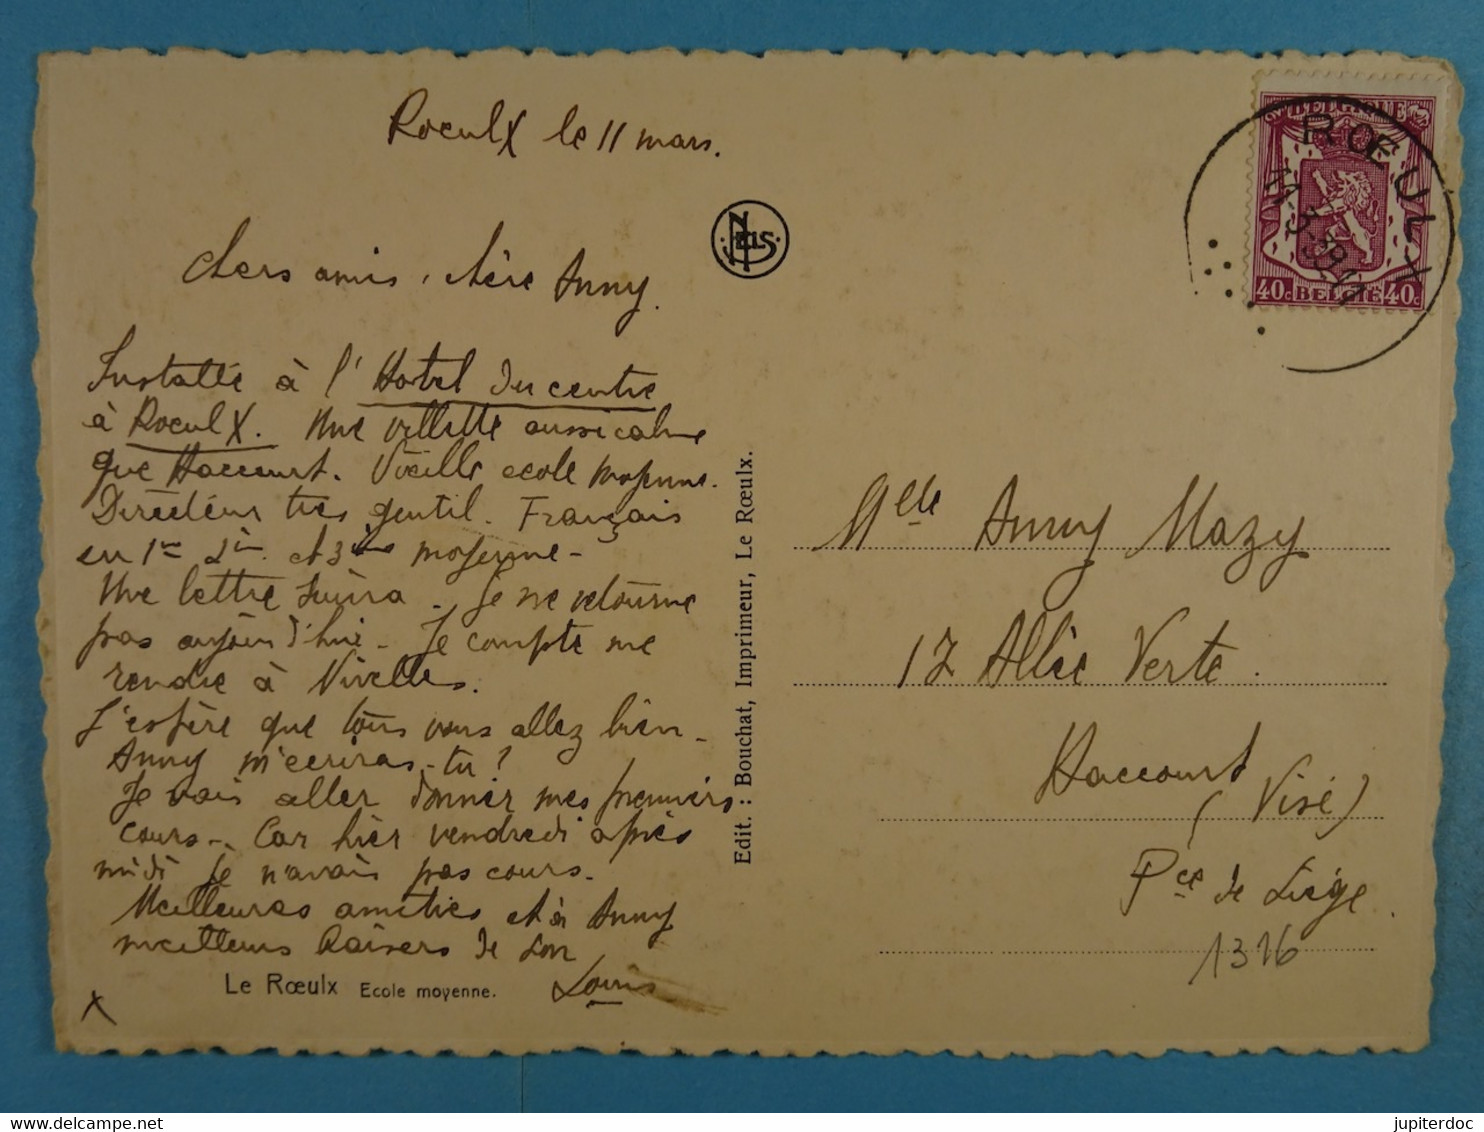 Roeulx le 11 mars.
Chers amis, chère Anny.
Installé à l'Hôtel du centre
à Roeulx. Une villette aussi calme
que Haccourt. Vieille ecole moyenne.
Directeur très gentil. Français
en 1re 2me et 3me moyenne -
Une lettre suivra. Je ne retourne
pas aujourd'hui - Je compte me
rendre à Nivelles.
J'espère que tous vous allez bien -
Anny m'ecriras-tu?
Je vais aller donner mes premiers
cours -. Car hier vendredi après
midi je n'avais pas cours.
Meilleures amitiés et à Anny
meilleurs baisers de son
Louis
Le Rœulx Ecole moyenne.
x
NELS
Edit. : Bouchat, Imprimeur, Le Rœulx.
BELGIQUE
40c BELGIË 40c
RŒULX
11-3-39
Melle Anny Mazy
17 Allée Verte.
Haccourt
(Visé)
Pce de Liège.
1316
jupiterdoc